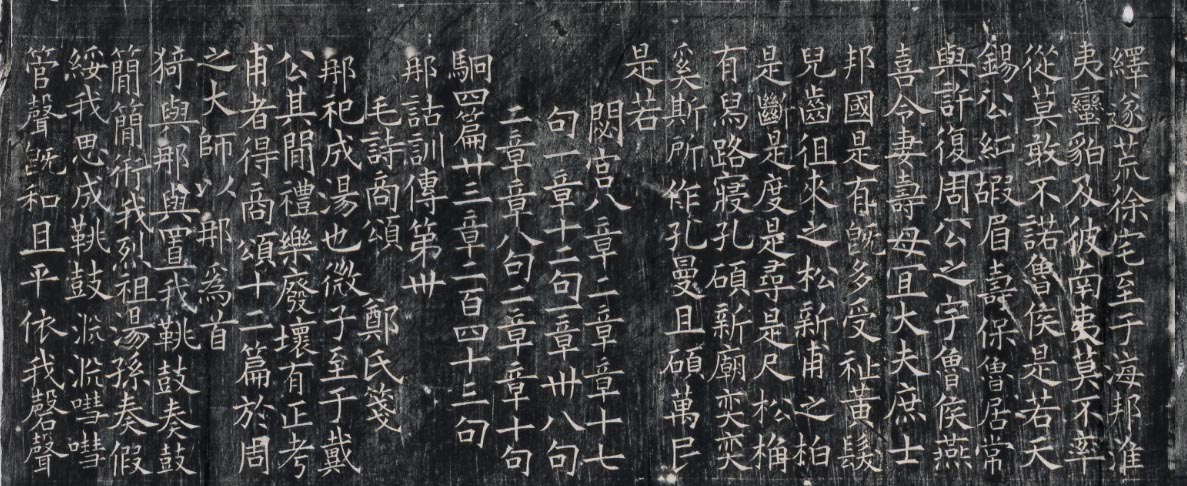 繹遂荒徐宅至于海邦淮
夷蠻貊及彼南夷莫不率
從莫敢不諾魯侯是若天
錫公純嘏眉壽保魯居常
與許復周公之宇魯侯燕
喜令妻壽母宜大夫庶士
邦國是有既多受祉黃髮
兒齒徂來之松新甫之柏
是斷是度是尋是尺松桷
有舄路寢孔碩新廟奕奕
奚斯所作孔曼且碩萬民
是若
閟宮八章二章章十七
句一章十二句一章卅八句
二章章八句二章章十句
駉四篇卅三章二百四十三句
那詁訓傳第卅
毛詩商頌 鄭氏箋
那祀成湯也微子至于戴
公其閒禮樂廢壞有正考
甫者得商頌十二篇於周
之大師以那為首
猗與那與置我鞉鼓奏鼓
簡簡衎我烈祖湯孫奏假
綏我思成鞉鼓淵淵嘒嘒
管聲既和且平依我磬聲